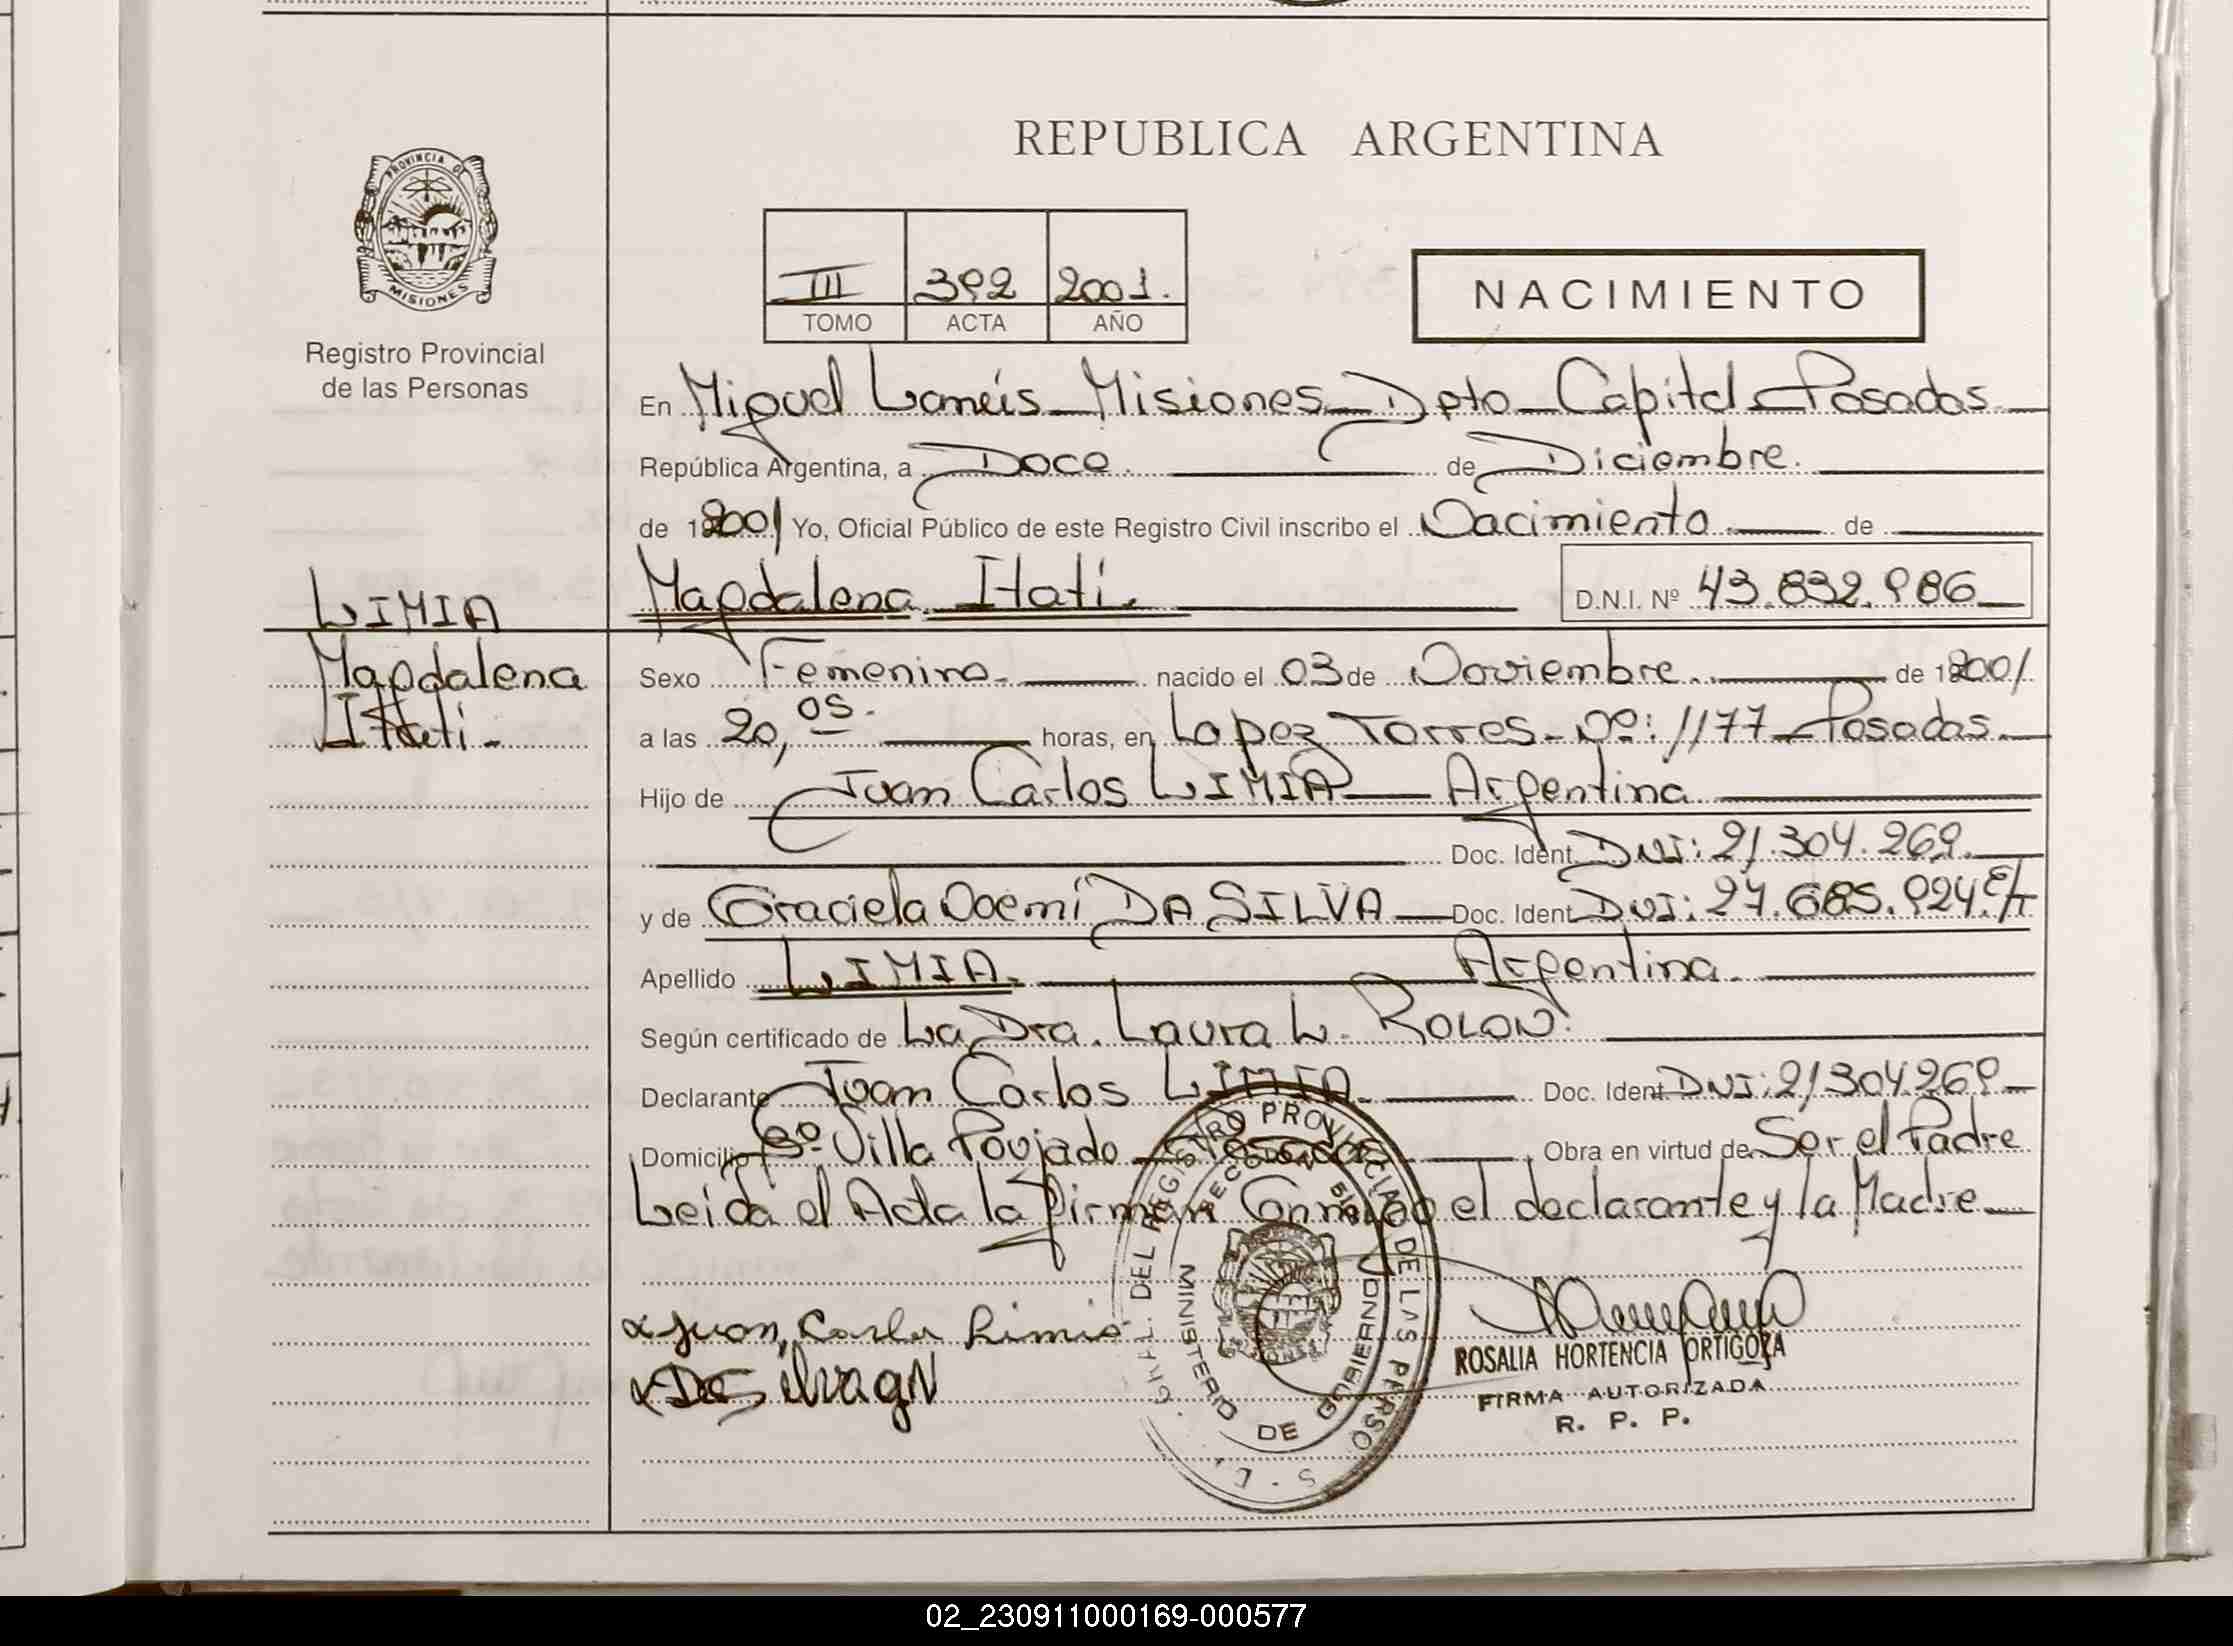 REPUBLICA ARGENTINA
PROVINCIA DE
MISIONES
Registro Provincial
de las Personas
III 392 2001.
TOMO ACTA AÑO
NACIMIENTO
En Miguel Lanús Misiones Dpto Capital Posadas
República Argentina, a Doce de Diciembre.
de 2001 Yo, Oficial Público de este Registro Civil inscribo el Nacimiento de
Magdalena Itatí. D.N.I. Nº 43.832.986
LIMIA
Magdalena
Itatí-
Sexo Femenino nacido el 03 de Noviembre. de 2001.
a las 20,05. horas, en Lopez Torres-Nº: 1177 Posadas.
Hijo de Juan Carlos LIMIA Argentina
Doc. Ident. DNI: 21.304.269.
y de Graciela Noemí DA SILVA Doc. Ident. DNI: 27.685.924
Apellido LIMIA. Argentina.
Según certificado de La Dra. Laura L. ROLON.
Declarante Juan Carlos LIMIA. Doc. Ident. DNI: 21304269
Domicilio Bº Villa Poujade Posadas Obra en virtud de Ser el Padre
Leída el Acta la firman Conmigo el declarante y la Madre
x Juan Carlos Limia
x Da Silva GN
DEL REGISTRO PROVINCIAL DE LAS PERSO
MINISTERIO DE GOBIERNO
ROSALIA HORTENCIA ORTIGOZA
FIRMA AUTORIZADA
R. P. P.
02_230911000169-000577